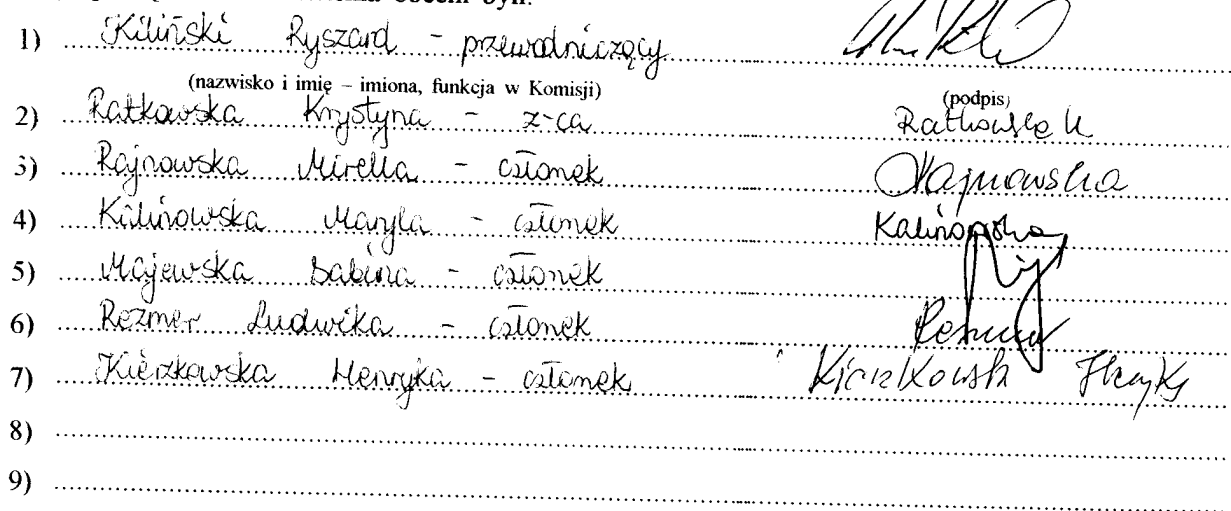 obecni byli:
1) Kiliński Ryszard – przewodniczący
(nazwisko i imię – imiona, funkcja w Komisji) (podpis)
2) Ratkowska Krystyna – z-ca Ratkowska K
3) Rajnowska Mirella – członek Rajnowska
4) Kalinowska Maryla – członek Kalinowska
5) Majewska Sabina – członek
6) Rezmer Ludwika – członek Rezmer
7) Kierzkowska Henryka – członek Kierzkowska Henryka
8)
9)